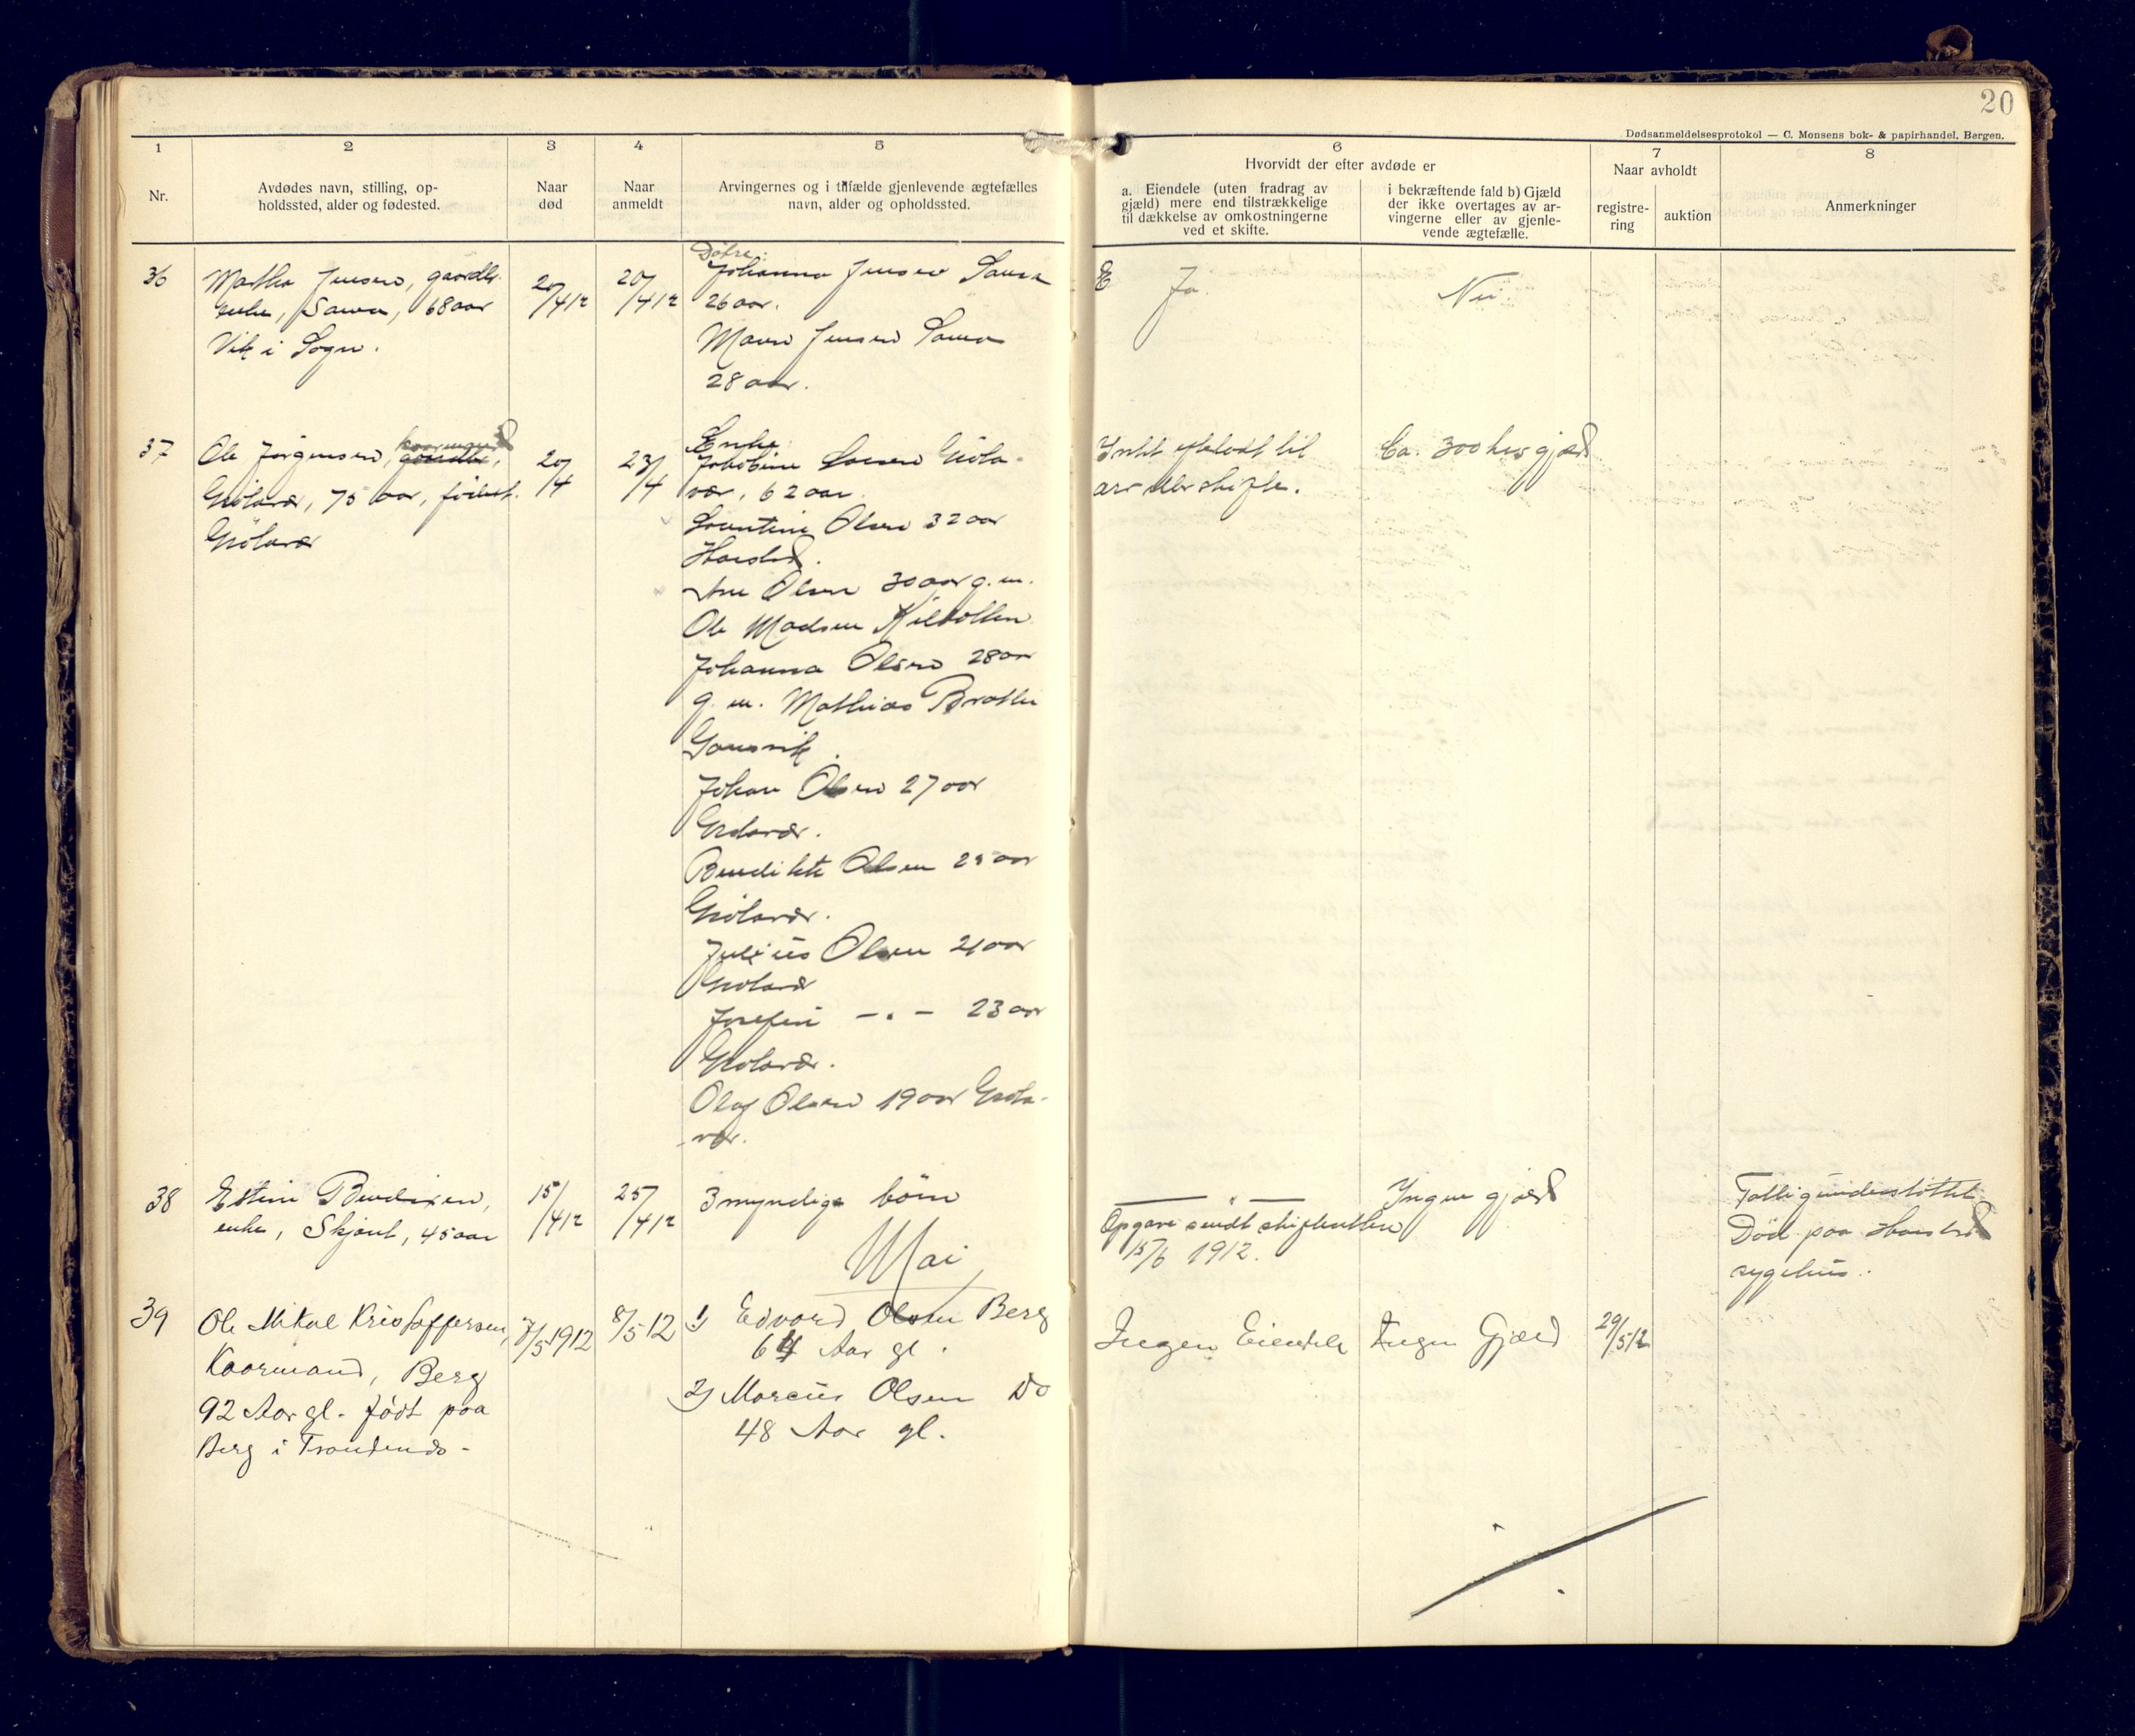 20
Dødsanmeldelsesprotokol — C. Monsens bok- & papirhandel, Bergen.
1 2 3 4 5 6 7 8
Nr.
Avdødes navn, stilling, op-
holdssted, alder og fødested.
Naar
død
Naar
anmeldt
Arvingernes og i tilfælde gjenlevende ægtefælles
navn, alder og opholdssted.
Hvorvidt der efter avdøde er
a. Eiendele (uten fradrag av
gjæld) mere end tilstrækkelige
til dækkelse av omkostningerne
ved et skifte.
i bekræftende fald b) Gjæld
der ikke overtages av ar-
vingerne eller av gjenle-
vende ægtefælle.
Naar avholdt
registre-
ring
auktion
Anmerkninger
36
Martha Jensen, gaardbr.
enke, Sama, 68 aar
Vik i Sogn.
20/4 12
20/4 12
Døtre:
Johanna Jensen Sama
26 aar.
Maren Jensen Sama
28 aar.
Ja.
Nei.
37
Ole Jørgensen, kaarmand
Grötavær, 75 aar, födest.
Grötavær
20/4
23/4
Enke:
Jakobine Larsen Gröta-
vær, 62 aar.
Laurentine Olsen 32 aar
Harstad.
Ane Olsen 30 aar g. m.
Ole Madsen Kilbotten
Johanna Olsen 28 aar
g. m. Mathias Brattli
Gausvik.
Johan Olsen 27 aar
Grötavær.
Benedikte Olsen 25 aar
Grötavær.
Julius Olsen 21 aar
Grötavær
Josefine — „ — 23 aar
Grötavær.
Olaf Olsen 19 aar Gröta-
vær.
Intet efterladt til
arv eller skifte.
Ca. 300 kr gjæld
38
Estine Bendixen,
enke, Skjønt, 45 aar
15/4 12
25/4 12
3 myndige börn
— „ —
Ingen gjæld
Opgave sendt skifteretten
15/6 1912.
Fattigunderstöttet.
Död paa Harstad
sygehus.
Mai
39
Ole Mikal Kristoffersen,
Kaarmand, Berg
92 Aar gl. født paa
Berg i Trondenes -
7/5 1912
8/5 12
1) Edvard Olsen Berg
64 Aar gl.
2) Marcus Olsen Do
48 Aar gl.
Ingen Eiendele
Ingen Gjæld
29/5 12